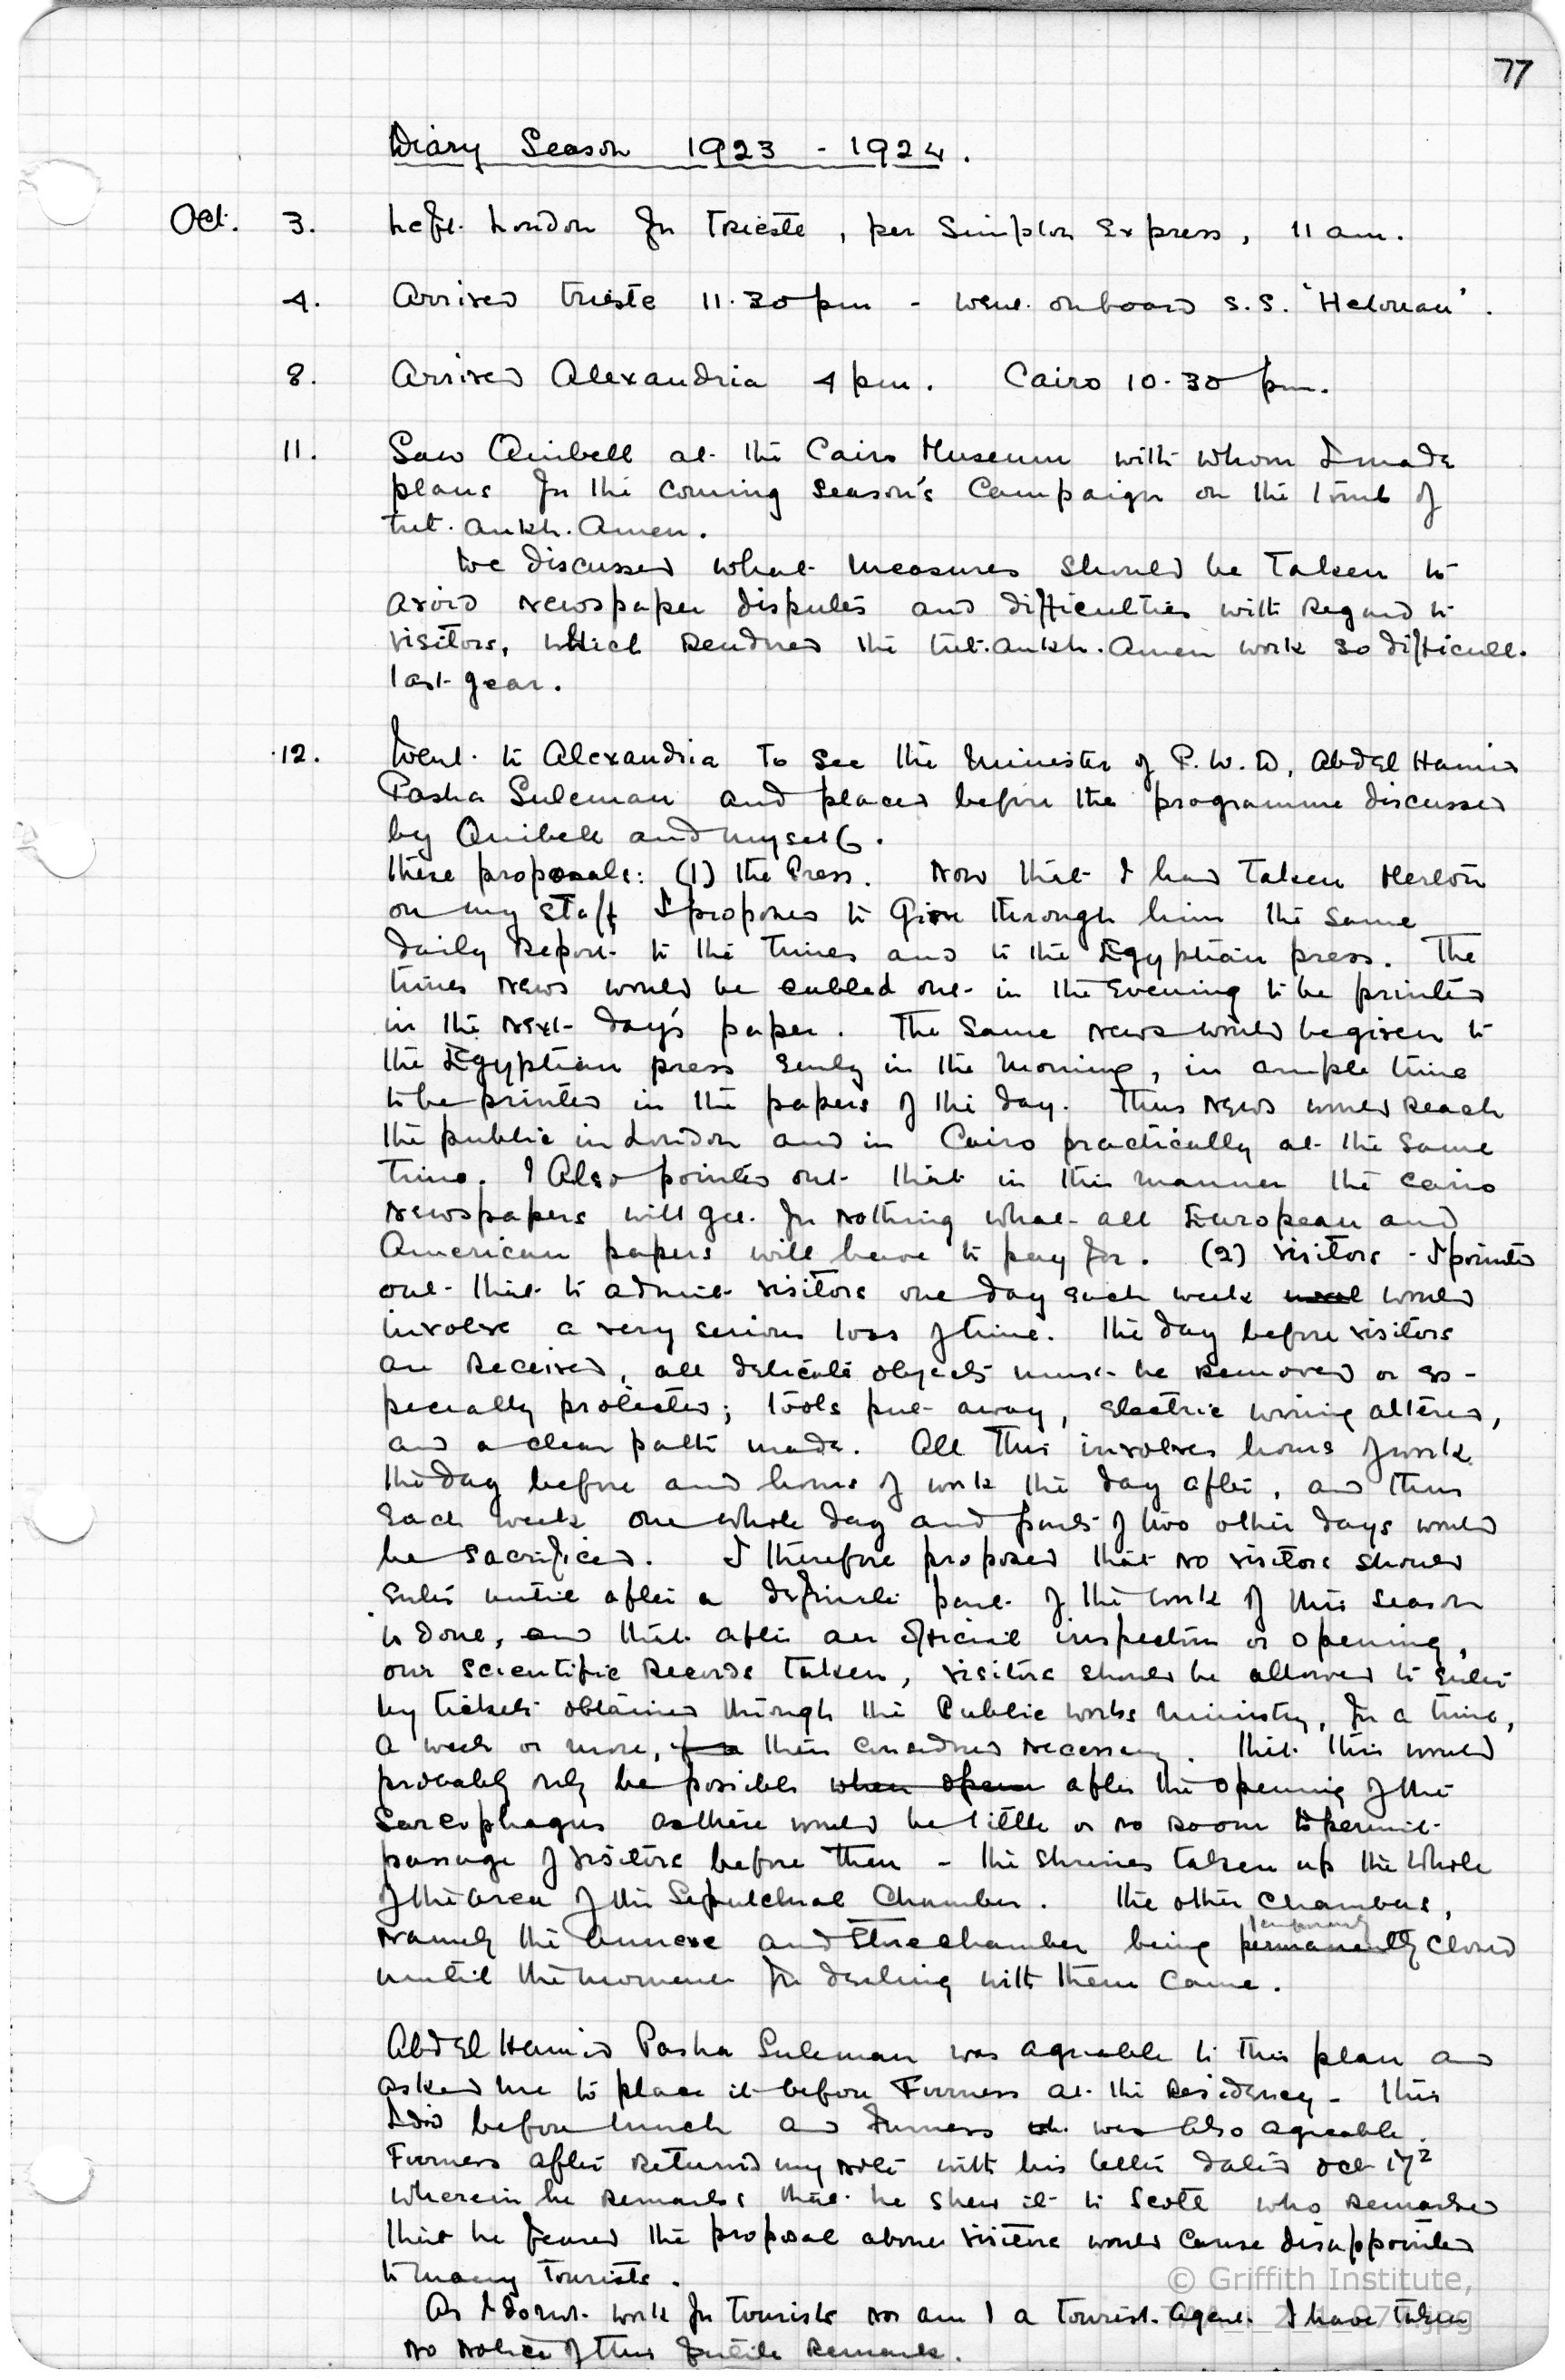 77
Diary Season 1923 - 1924.
Oct. 3. Left London for Trieste, per Simplon Express, 11 am.
4. Arrived Trieste 11.30 pm - went onboard S.S. 'Helouan'.
8. Arrived Alexandria 4 pm. Cairo 10.30 pm.
11. Saw Quibell at the Cairo Museum with whom I made
plans for the coming season's campaign on the tomb of
Tut.ankh.Amen.
We discussed what measures should be taken to
avoid newspaper disputes and difficulties with regard to
visitors, which rendered the Tut.ankh.Amen work so difficult
last year.
12. Went to Alexandria to see the Minister of P.W.D, Abd El Hamid
Pasha Suleman and placed before the programme discussed
by Quibell and myself.
These proposals: (1) The Press. Now that I had taken Merton
on my staff I proposed to give through him the same
daily report to the Times and to the Egyptian press. The
Times news would be cabled out in the evening to be printed
in the next day's paper. The same news would be given to
the Egyptian press early in the morning, in ample time
to be printed in the papers of the day. Thus news would reach
the public in London and in Cairo practically at the same
time. I also pointed out that in this manner the Cairo
newspapers will get for nothing what all European and
American papers will have to pay for. (2) Visitors - I pointed
out that to admit visitors one day each week would
involve a very serious loss of time. The day before visitors
are received, all delicate objects must be removed or es-
pecially protected; tools put away, electric wiring altered,
and a clear path made. All this involves hours of work
the day before and hours of work the day after, and thus
each week one whole day and parts of two other days would
be sacrificed. I therefore proposed that no visitors should
enter until after a definite part of the work of this season
is done, and that after an official inspection or opening,
our scientific records taken, visitors should be allowed to enter
by tickets obtained through the Public Works Ministry, for a time,
a week or more, then considered necessary. That this would
probably only be possible when open after the opening of the
Sarcophagus as there would be little or no room to permit
passage of visitors before then - the shrines taken up the whole
of the area of the Sepulchral Chamber. The other chambers,
namely the Annexe and Storechamber being permanently temporarily closed
until the moment for dealing with them came.
Abd El Hamid Pasha Suleman was agreeable to this plan and
asked me to place it before Furness at the Residency - this
I did before lunch and Furness was also agreeable.
Furness after returned my note with his letter dated Oct 17
wherein he remarks that he shew it to Scott who remarked
that he feared the proposal about visitors would cause disappointed
to many tourists.
As I do not work for tourists nor am I a tourist agent I have taken
no notice of this futile remark.
© Griffith Institute,